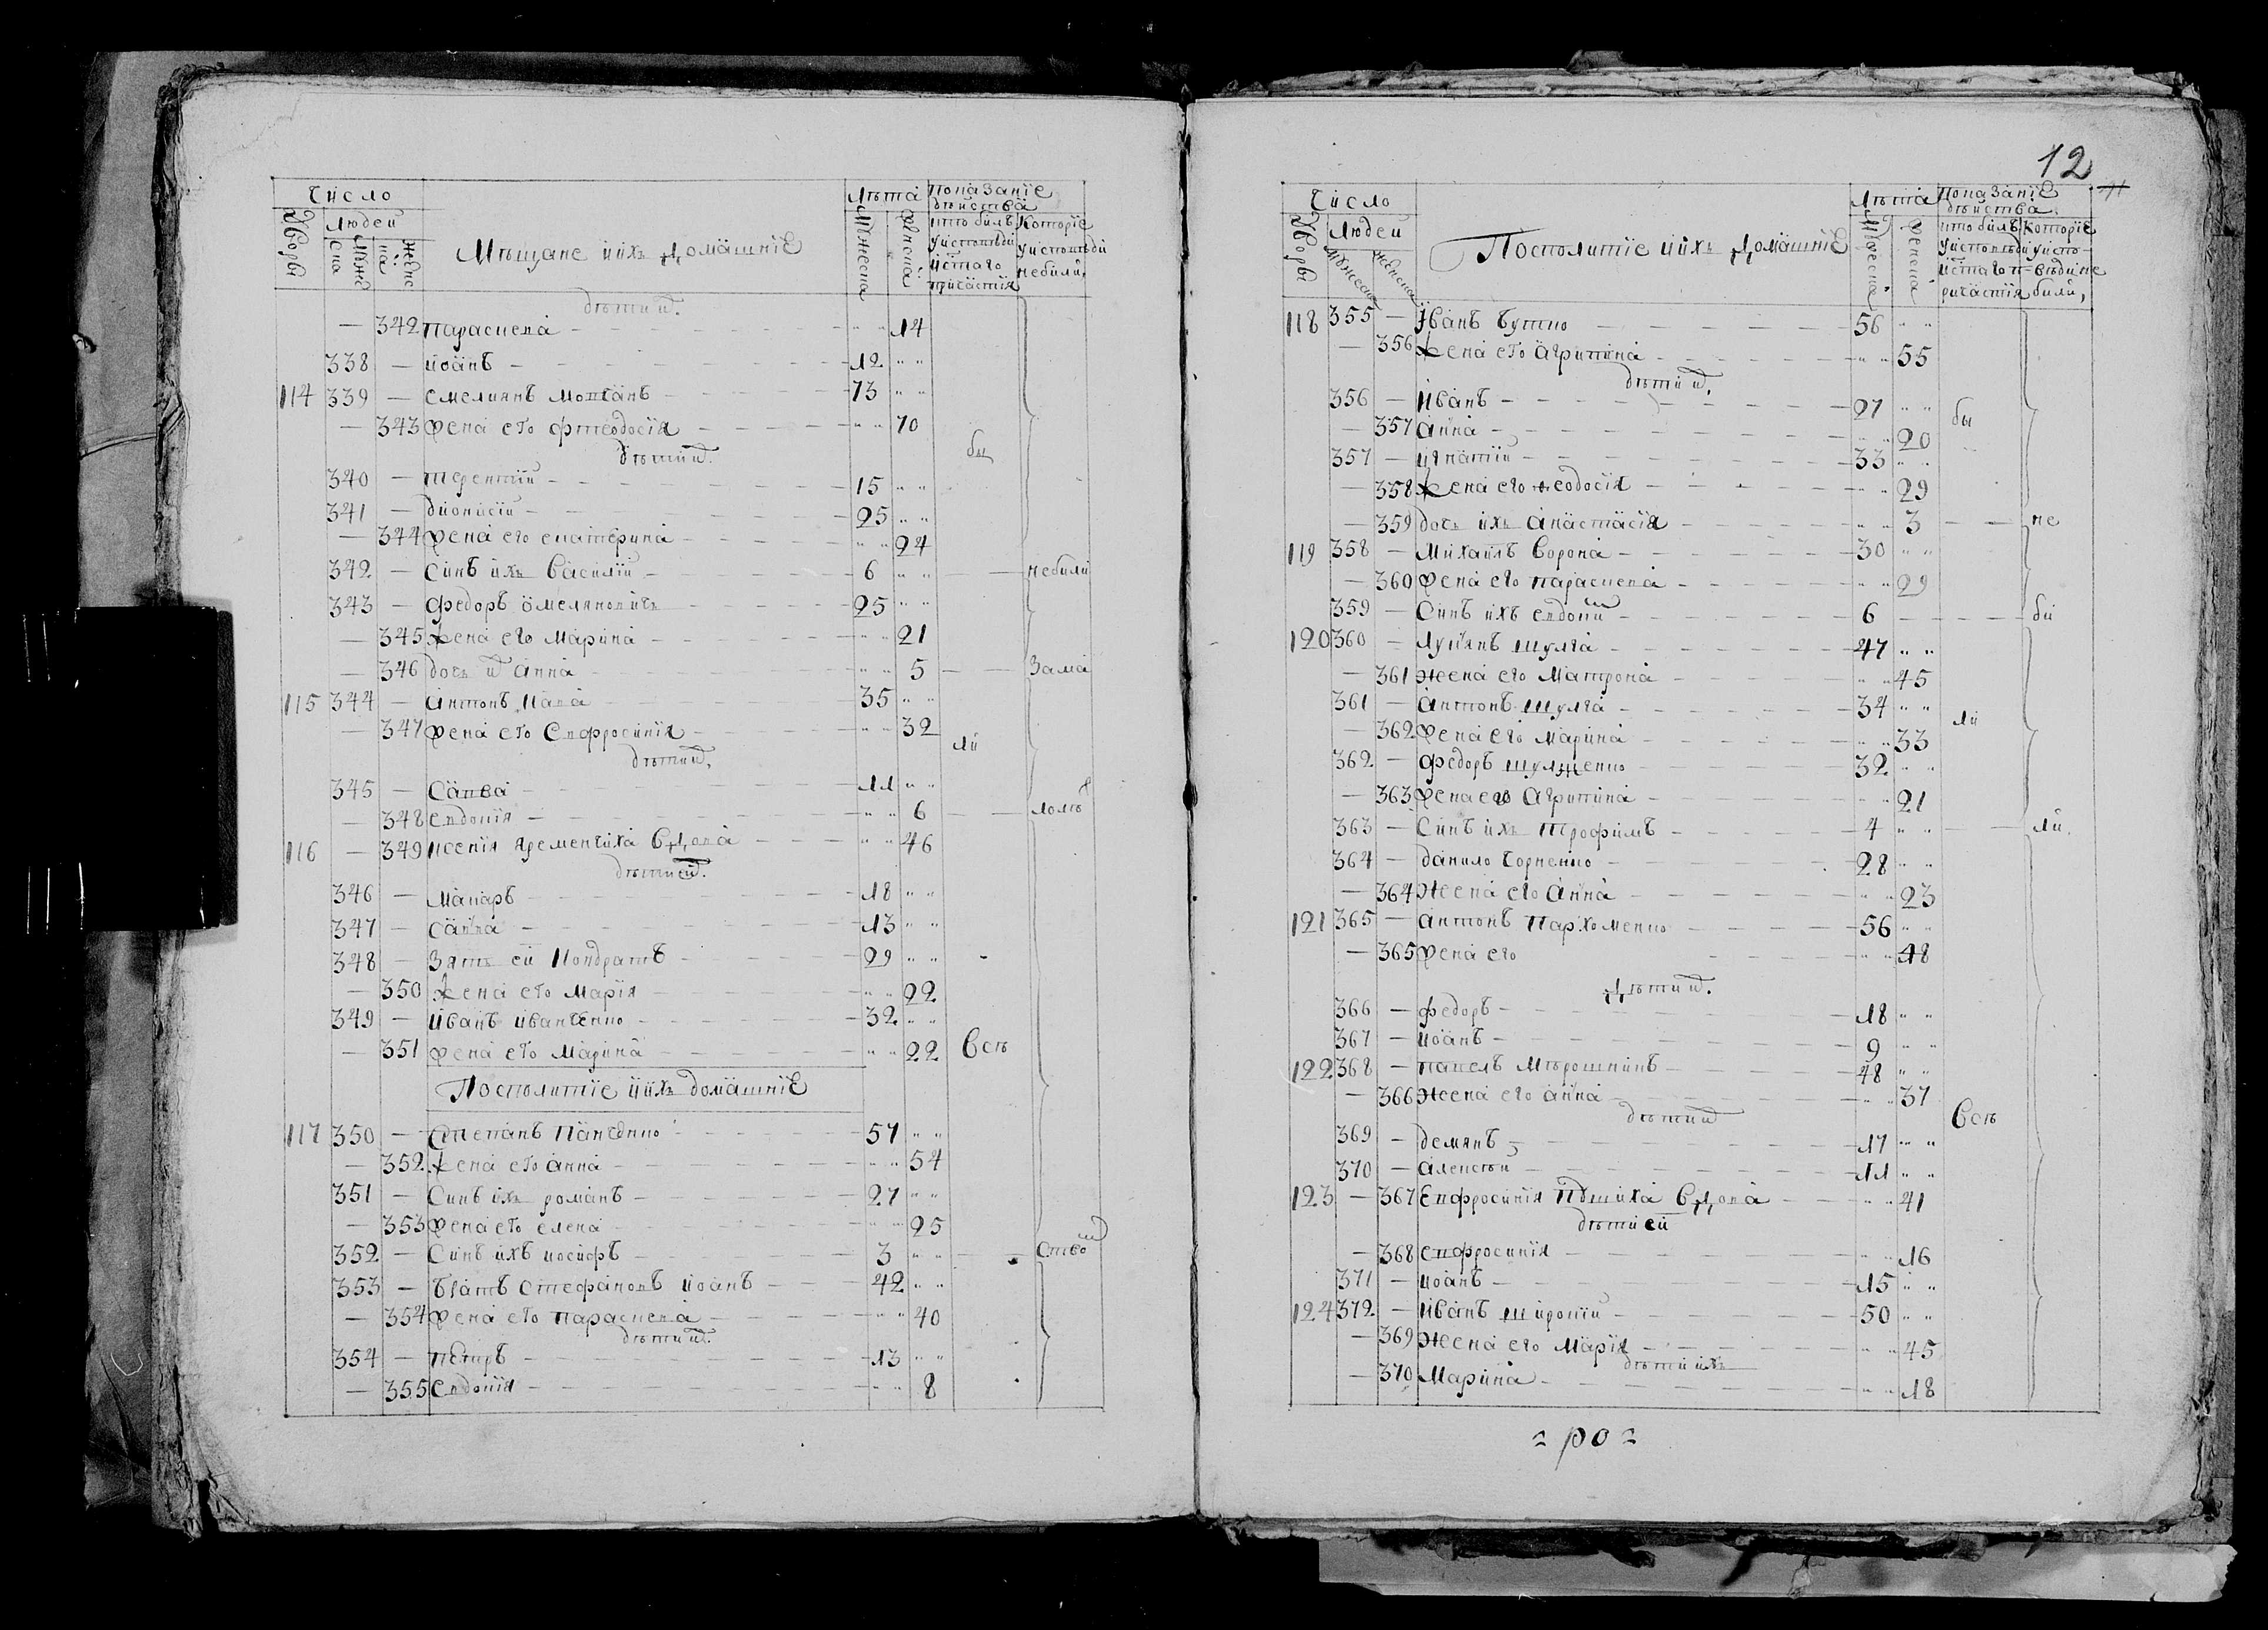 Число
Лѣта
Показаніе дѣйства
Дворы
Людей
Мужеска
Женска
Мѣщане и ихъ домашніе
Мужеска
Женска
кто былъ у исповѣди и с̃таго причастія
Которіе у исповѣди небили,
дѣти их
— 342 Параскева 14
338 — Иоанъ 12
114 339 — Емелиянъ Мошанъ 73
— 343 Жена его Фтеодосія 70
дѣти их
бы
340 — Терентій 15
341 — Дионисій 25
— 344 Жена его Екатерина 24
342 — Синъ ихъ Василій 6 — — небили
343 — Федоръ Омеляновичъ 25
— 345 Жена его Марина 21
— 346 дочь и Анна 5 — — Зама
115 344 — Антонъ 35
— 347 Жена его Евфросинія 32
ли
дѣти их
345 — Савва 11
— 348 Евдокія 6 — — лолѣ
116 — 349 Ксенія Яременчиха Вдова 46
дѣти ей
346 — Макаръ 18
347 — Савва 13
348 — Зять ей Кондратъ 29
— 350 Жена его Марія 22
349 — Иванъ Иванченко 32
— 351 Жена его Марина 22
Всѣ
Посполитіе и ихъ домашніе
117 350 — Степанъ Панченко 57
— 352 Жена его Анна 54
351 — Синъ ихъ Романъ 27
— 353 Жена его Елена 25
352 — Синъ ихъ Иосифъ 3 — — ство
353 — Братъ Стефановъ Иоанъ 42
— 354 Жена его Параскева 40
дѣти их
354 — Петръ 13
— 355 Евдокія 8
12
11
Число
Лѣта
Показаніе дѣйства
Дворы
Людей
Мужеска
Женска
Посполитіе и ихъ домашніе
Мужеска
Женска
кто былъ у исповѣди и с̃таго причастія
Которіе у исповѣди не били,
118 355 — Иванъ Бутко 56
— 356 Жена его Агрипина 55
дѣти их
356 — Иванъ 27
бы
— 357 Анна 20
357 — Игнатій 33
— 358 Жена его Феодосія 29
— 359 дочь ихъ Анастасія 3 — — не
119 358 — Михаилъ Ворона 30
— 360 Жена его Параскева 29
359 — Синъ ихъ Евдоким 6 — — би
120 360 — Лукянъ Шулга 47
— 361 Жена его Матрона 45
361 — Антонъ Шулга 34
ли
— 362 Жена его Марина 33
362 — Федоръ Шулженко 32
— 363 Жена его Агрипина 21
363 — Синъ ихъ Трофимъ 4 — — ли,
364 — Данило Чорненко 28
— 364 Жена его Анна 23
121 365 — Антонъ Пархоменко 56
— 365 Жена его 48
Дѣти их
366 — Федоръ 18
367 — Иоанъ 9
122 368 — Павелъ Мѣрошникъ 48
— 366 Жена его Анна 37
дѣти их
Всѣ
369 — Демянъ 17
370 — Алексѣй 11
123 — 367 Евфросинія Вдова 41
дѣти ей
— 368 Евфросинія 16
371 — Иоанъ 15
124 372 — Иванъ Широкій 50
— 369 Жена его Марія 45
дѣти ихъ
— 370 Марина 18
ро